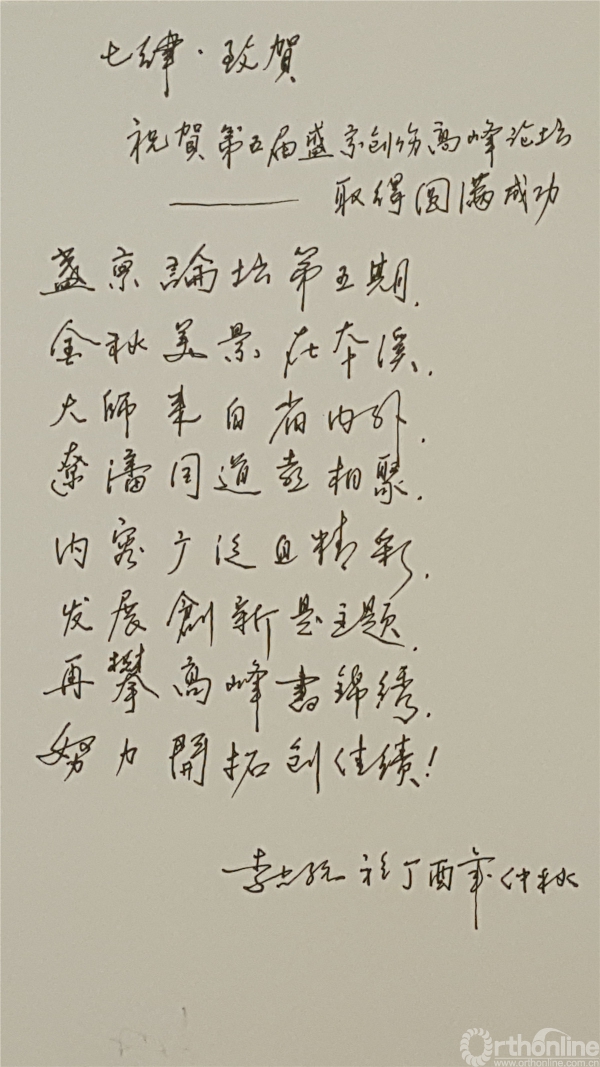 七律·致賀
祝賀第五届盛京创伤高峰论坛
——— 取得圆满成功
盛京論坛第五期,
金秋美景在本溪,
大師来自省内外,
遼瀋同道喜相聚,
内容广泛且精彩,
发展創新是主题,
再攀高峰書錦绣,
努力開拓创佳績!
李 丁酉年仲秋
Orthonline
www.orthonline.com.cn